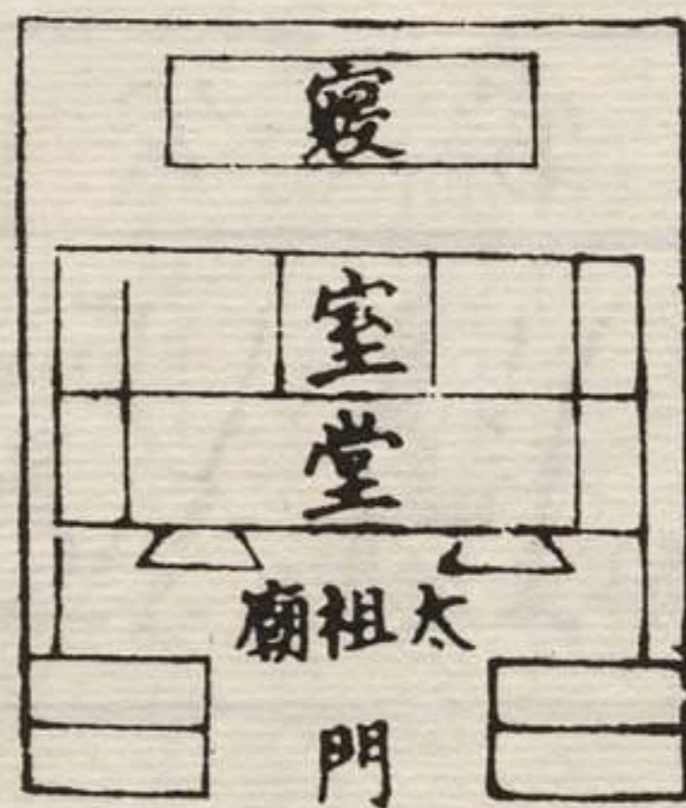 寢
室
堂
太祖廟
門